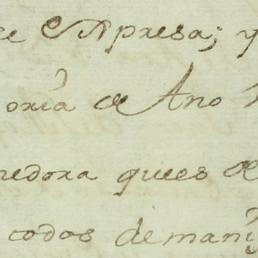 de Apresa; y
oria de Ano
nedora quees de
codos de mani